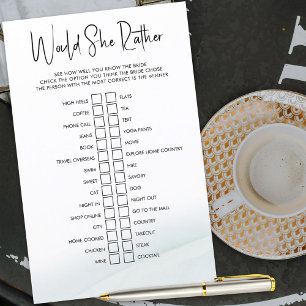 Would She Rather
SEE HOW WELL YOU KNOW THE BRIDE
CHECK THE OPTION YOU THINK THE BRIDE CHOSE
THE PERSON WITH THE MOST CORRECT IS THE WINNER
HIGH HEELS FLATS
COFFEE TEA
PHONE CALL TEXT
JEANS YOGA PANTS
BOOK MOVIE
TRAVEL OVERSEAS EXPLORE HOME COUNTRY
SWIM HIKE
SWEET SAVORY
CAT DOG
NIGHT IN NIGHT OUT
SHOP ONLINE GO TO THE MALL
CITY COUNTRY
HOME COOKED TAKEOUT
CHICKEN STEAK
WINE COCKTAIL